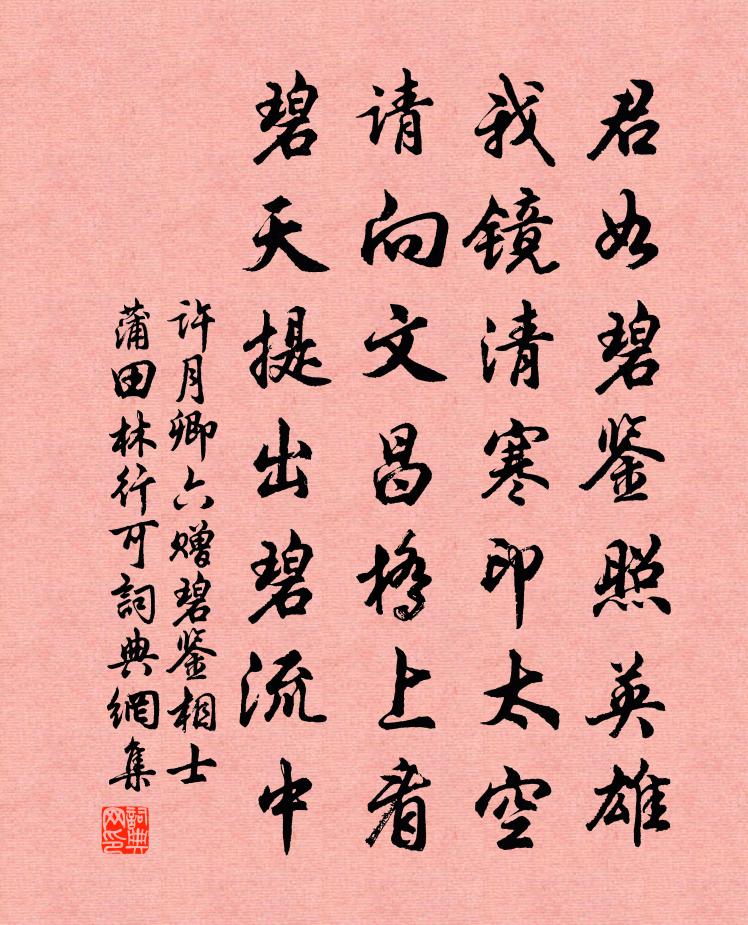 君如碧鉴照英雄
我镜清寒印太空
请向文昌橋上看
碧天提出碧流中
许月卿六赠碧鉴相士
蒲田林行可詞典網集
詞典
网印